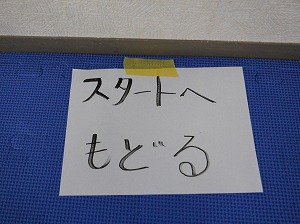 スタートへ
もどる